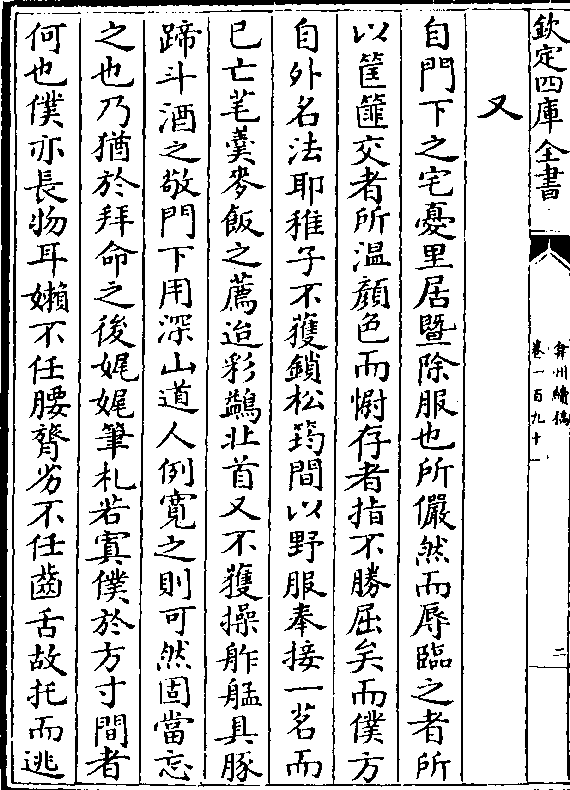 欽定四庫全書
弇州續稿
卷一百九十一
二
又
自門下之宅憂里居暨除服也所儼然而辱臨之者所
以筐篚交者所溫顏色而慰存者指不勝屈矣而僕方
自外名法耶稚子不獲鎖松筠間以野服奉接一茗而
已亡芼羹麥飯之薦迨彩鷁北首又不獲操舴艋具豚
蹄斗酒之敬門下用深山道人例寛之則可然固當忘
之也乃猶於拜命之後娓娓筆札若寘僕於方寸間者
何也僕亦長物耳嬾不任腰膂劣不任齒舌故托而逃